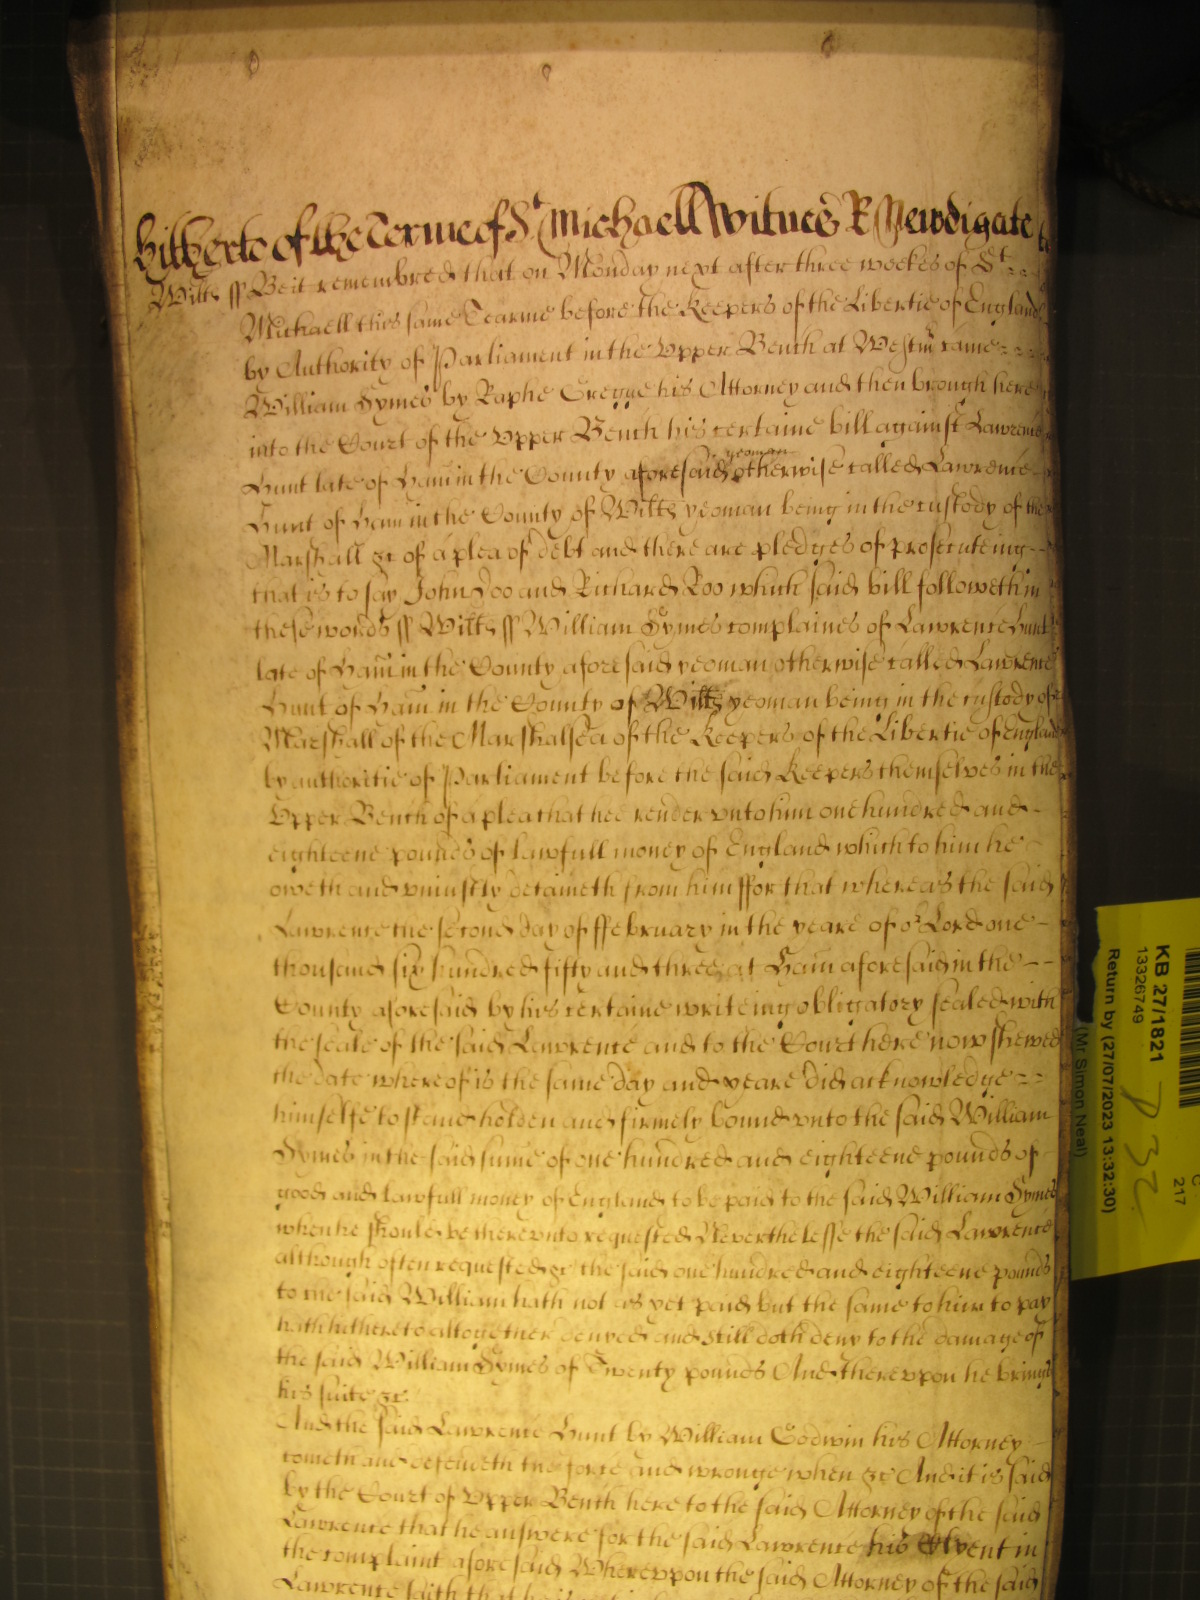 Hitherto of the Terme of St Michaell Witnes R Newdigate
Wilts ss Be it remembred that on Monday next after three weekes of St
Michaell this same Tearme before the Keepers of the Libertie of England
by Authority of Parliament in the Upper Bench at Westm came
William Symes by Raphe Gregge his Attorney and then brough here
into the Court of the Upper Bench his certaine bill against Lawrence
yeoman
Hunt late of Ham in the County aforesaid otherwise called Lawrence
Hunt of Ham in the County of Wilts yeoman being in the custody of the
Marshall &c of a plea of debt and there are pledges of prosecuteing
that is to say John Doo and Richard Roo which said bill followeth in
these words ss Wilts ss William Symes complaines of Lawrence Hunt
late of Ham in the County aforesaid yeoman otherwise called Lawrence
Hunt of Ham in the County of Wilts yeoman being in the custody of
Marshall of the Marshalsea of the Keepers of the Libertie of England
by authoritie of Parliament before the said Keepers themselves in the
Upper Bench of a plea that hee render unto him one hundred and
eighteene pounds of lawfull money of England which to him he
oweth and uniustly detaineth from him ffor that whereas the said
Lawrence the second day of ffebruary in the yeare of or Lord one
thousand six hundred fifty and three at Ham aforesaid in the
County aforesaid by his certaine writeing obligatory sealed with
the seale of the said Lawrence and to the Court here now shewed
the date whereof is the same day and yeare did acknowledge
himselfe to stand holden and firmely bound unto the said William
Symes in the said sume of one hundred and eighteene pounds of
good and lawfull money of England to be paid to the said William Symes
when he should be thereunto requested Neverthelesse the said Lawrence
although often requested &c the said one hundred and eighteene pounds
to the said William hath not as yet paid but the same to him to pay
hath hitherto altogether denyed and still doth deny to the damage of
the said William Symes of Twenty pounds And thereupon he brings
his suite &c.
And the said Lawrence Hunt by William Godwin his Attorney
cometh and defendeth the force and wronge when &c And it is said
by the Court of Upper Bench here to the said Attorney of the said
Lawrence that he answere for the said Lawrence his Clyent in
the complaint aforesaid Whereupon the said Attorney of the said
Lawrence saith that he is not
KB 27/1821
13326749
Return by (27/07/2023 13:32:30)
(Mr Simon Neal)
217
P 32